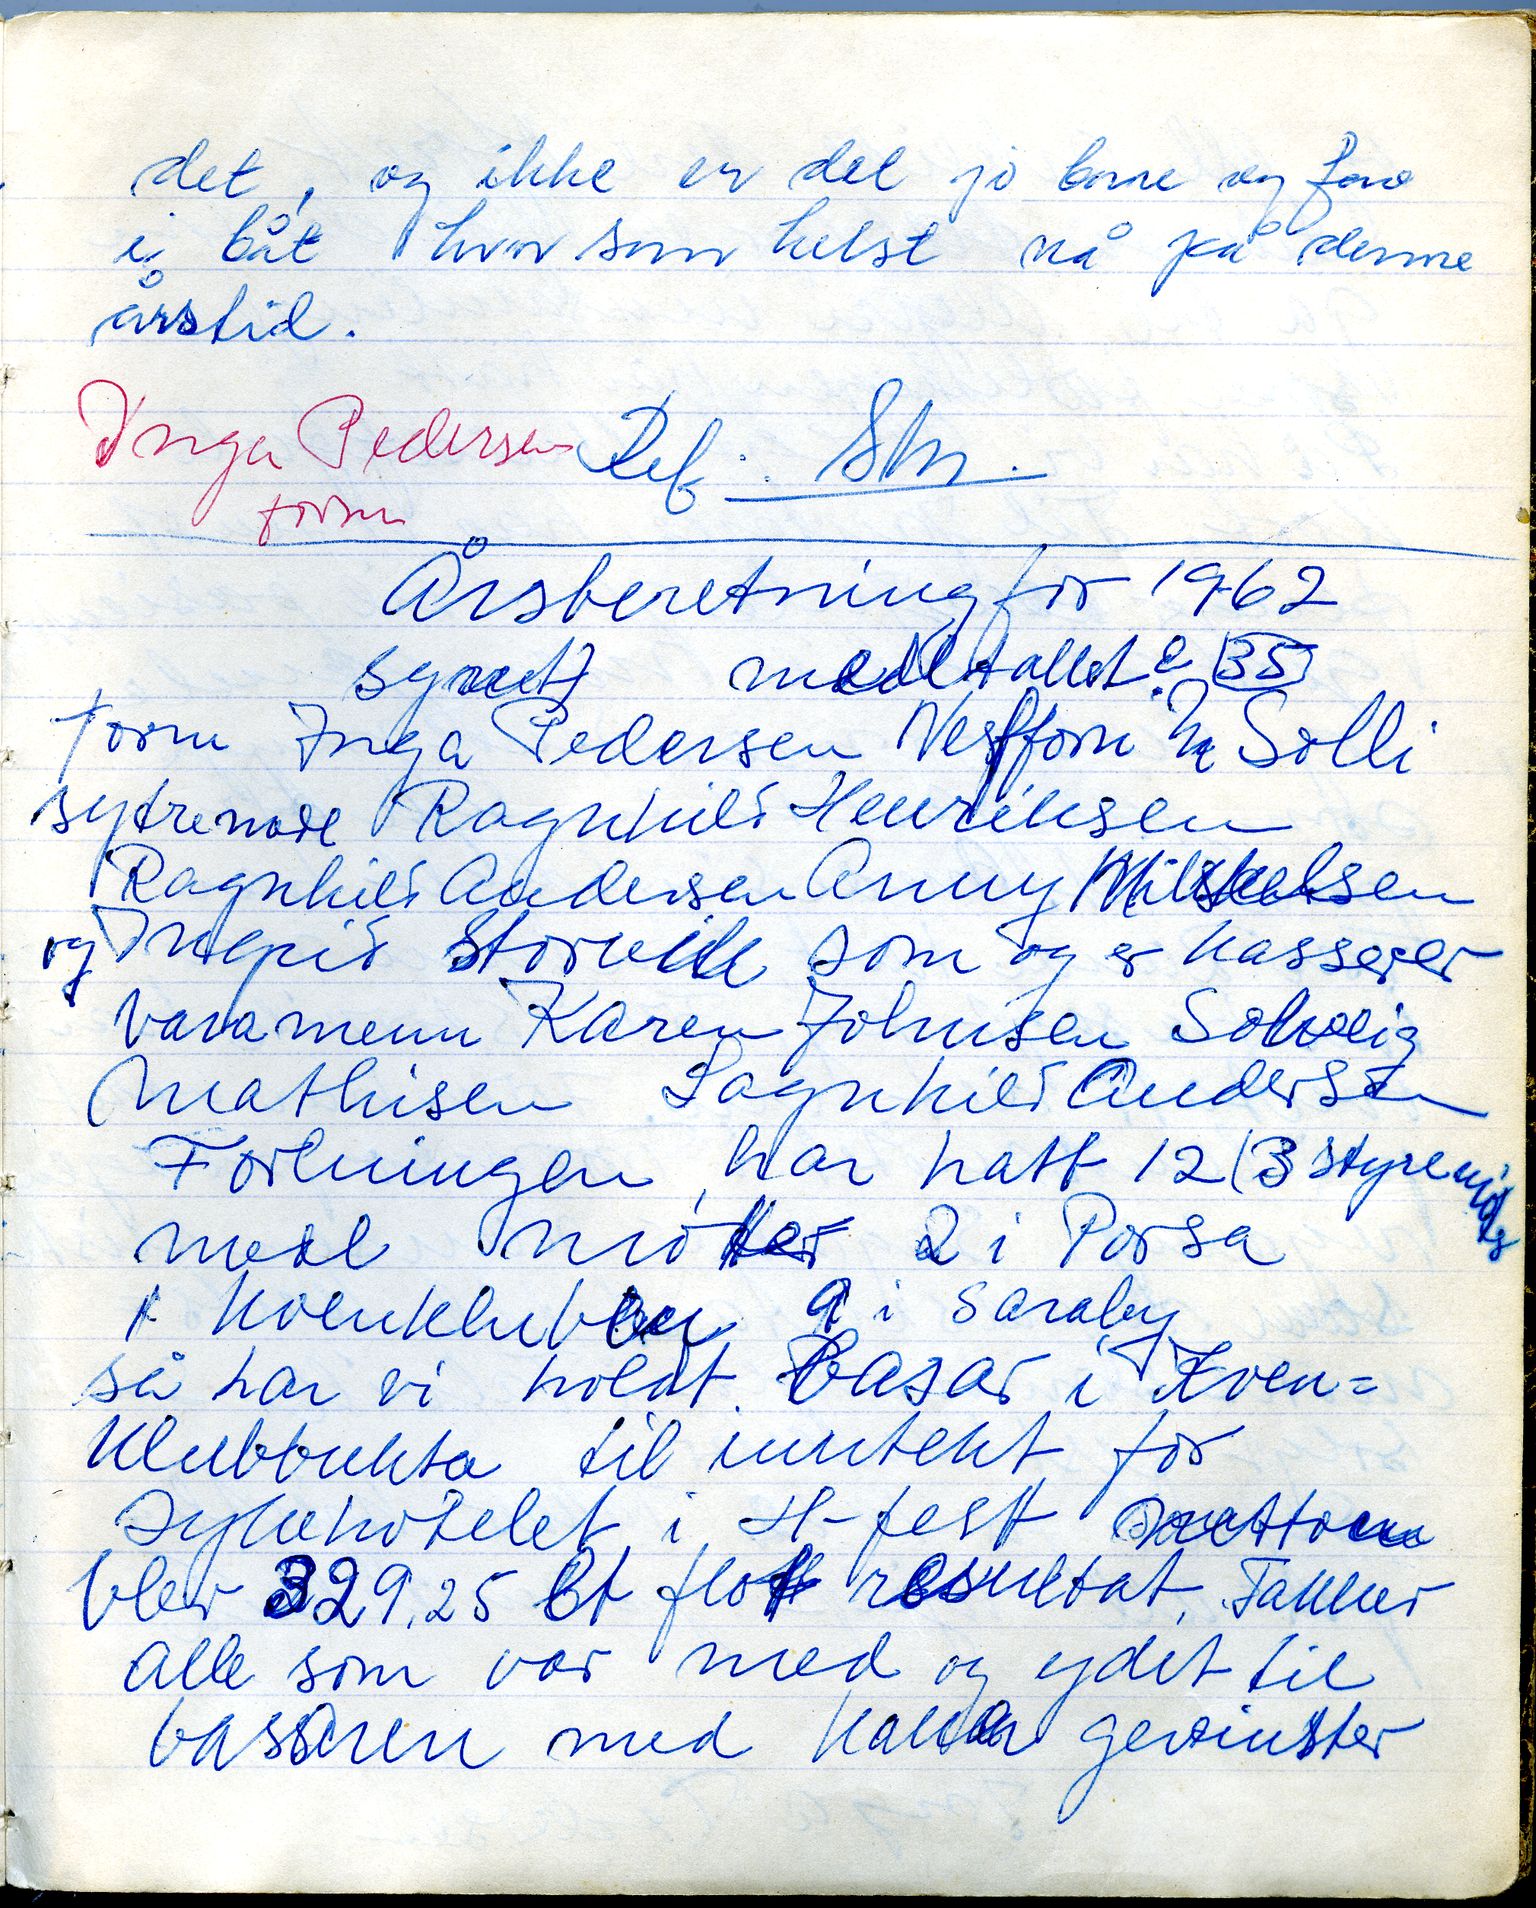 det, og ikke er det jo bare og fare
i båt hvor som helst nå på denne
årstid.
Inga Pedersen Ref: SM.
form
Årsberetning for 1962
medltallet e 35
form Inga Pedersen Nestform M Solli
sytrende Ragnhild Henriksen
Ragnhild Andersen Anny Mikkelsen
og Ingrid Storvik som og er kasserer
varamenn Karen Johnsen Solveig
Mathisen Ragnhild Andersen
Forningen har hatt 12 (3 styremøter
medl møtter 2 i Porsa
1 Kvenklubben 9 i Saraby
så har vi holdt Basar i Kven=
Klubbukta til inntekt for
Sykehotelet i H-fest nettoen
blev 329,25 Et flott resultat. Takker
alle som var med og ydet til
bassaren med gevinster